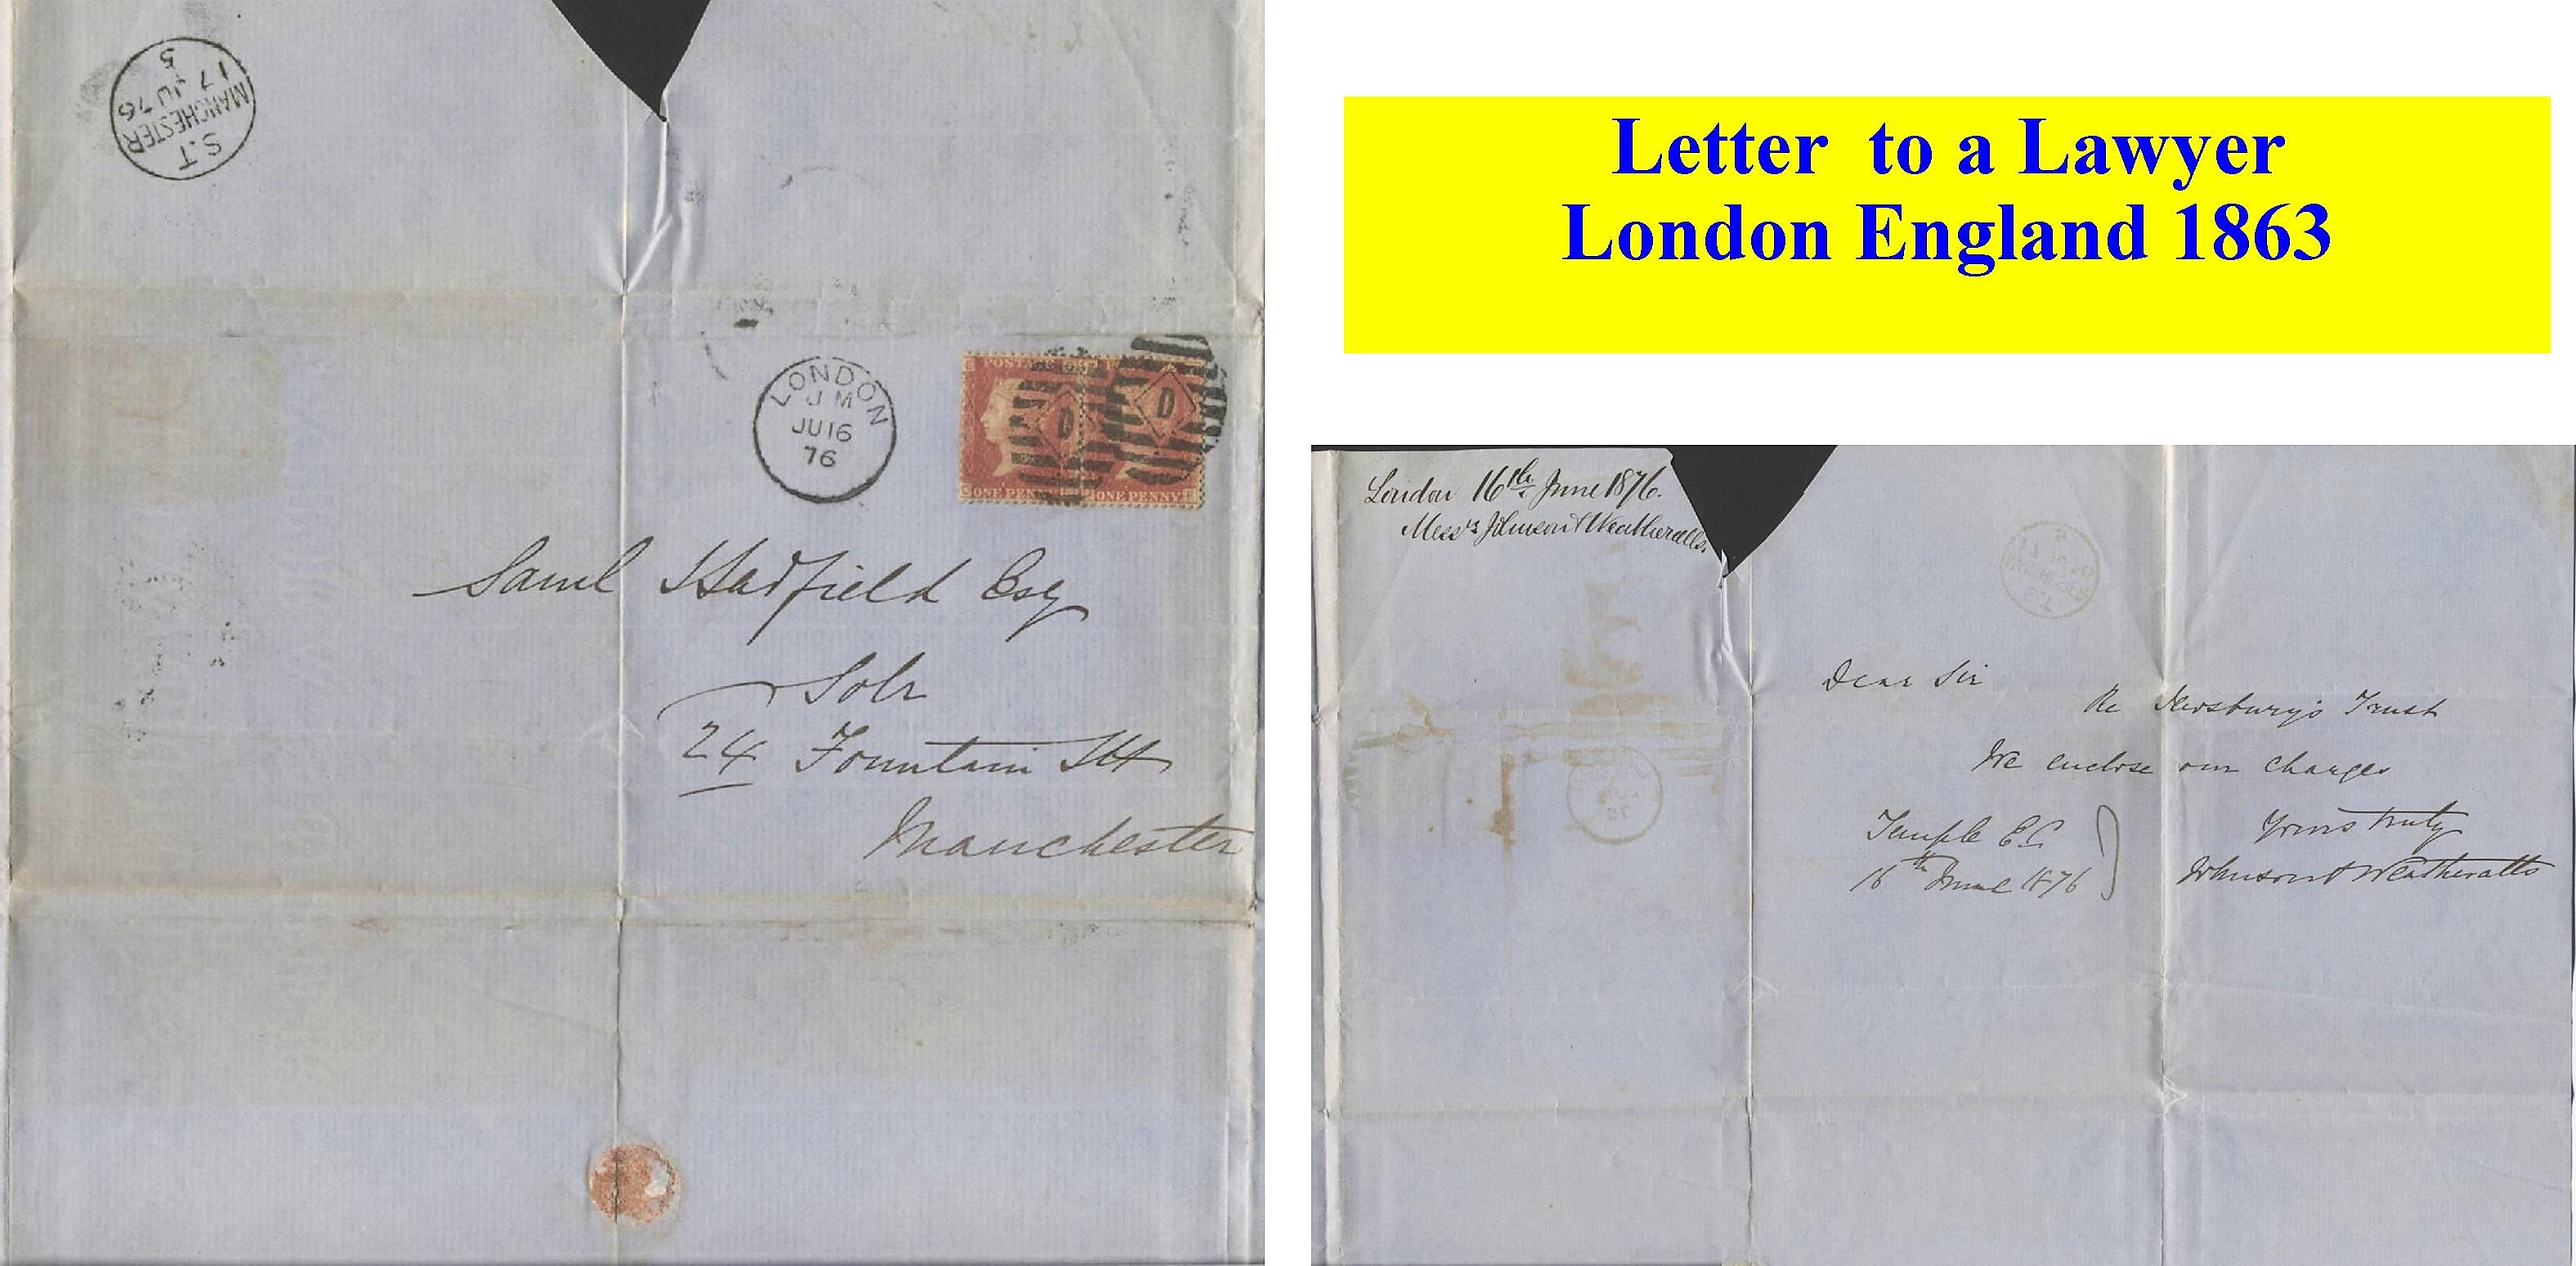 S.T
MANCHESTER
17
JU 76
5
LONDON
J M
JU 16
76
POSTAGE
D
D
ONE PENNY
Saml Hadfield Esq
Solr
24 Fountain Stt
Manchester
Letter to a Lawyer
London England 1863
London 16th June 1876.
Messrs Johnson & Weatheralls.
Dear Sir
Re Trust
We enclose our charges
Temple E.C
16th June 1876
Yours truly
Johnson & Weatheralls